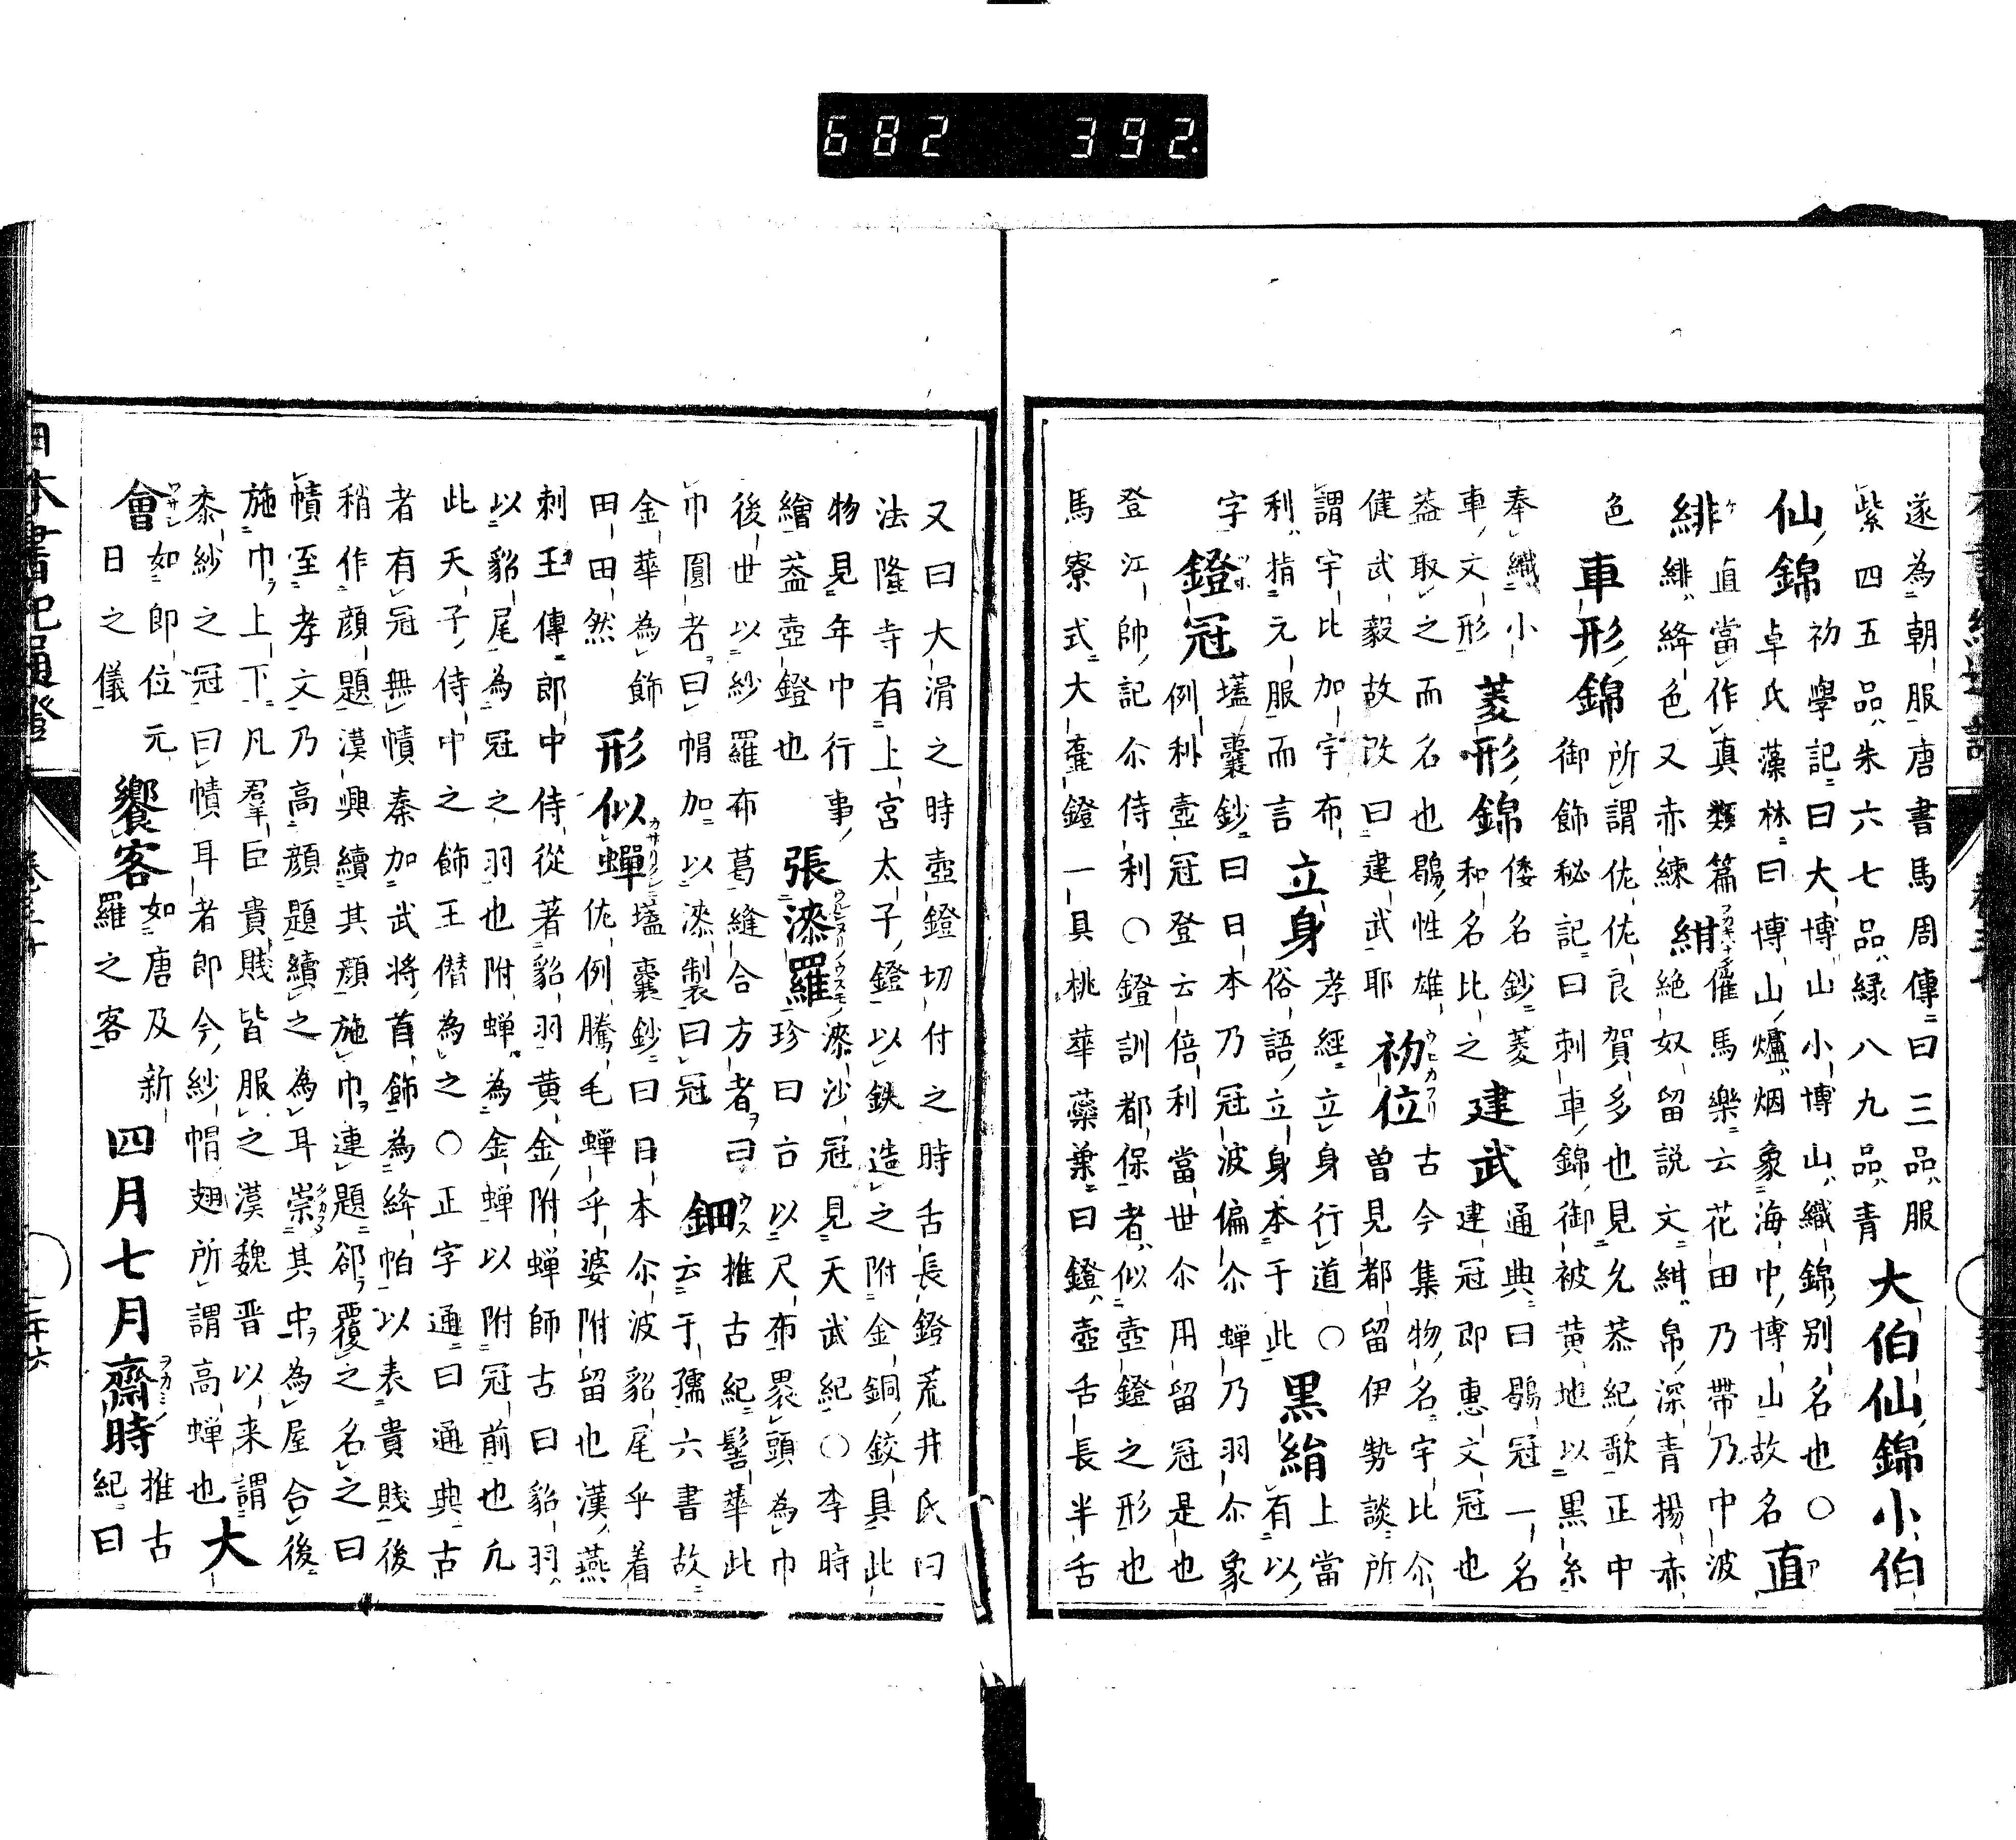 682 392
遂為朝服唐書馬周傳曰三品服
紫四五品朱六七品緑八九品青 大伯仙錦小伯
仙錦 初學記曰大博山小博山織錦別名也〇
卓氏藻林曰博山爐烟象海中博山故名 直
緋 直當作真類篇催馬樂云花田乃帶乃中波
緋絳色又赤練 紺 絶奴留説文紺帛深青揚赤
色 車形錦 所謂佐佐良賀多也見允恭紀歌正中
御飾秘記曰刺車錦御被黄地以黒糸
奉織小 菱形錦 倭名鈔菱 建武 通典曰鶡冠一名
車文形 和名比之 建冠即惠文冠也
葢取之而名也鶡性雄 初位 古今集物名宇比尒
健武毅故改曰建武耶 曽見都留伊勢談所
謂宇比加宇布 立身 孝經立身行道〇 黒絹 上當
利指元服而言 俗語立身本于此 有以
字 鐙冠 壒囊鈔曰日本乃冠波偏尒蝉乃羽尒象
例利壺冠登云倍利當世尒用留冠是也
登江帥記尒侍利〇鐙訓都保者似壺鐙之形也
馬寮式大壷鐙一具桃華蘂葉曰鐙壺舌長半舌
又曰大滑之時壺鐙切付之時舌長鐙荒井氏曰
法隆寺有上宮太子鐙以鉄造之附金銅鉸具此
物見年中行事 張漆羅 漆沙冠見天武紀〇李時
繪葢壺鐙也 珍曰古以尺布裹頭為巾
後世以紗羅布葛縫合方者曰 鈿 推古紀髻華此
巾圓者曰帽加以漆製曰冠 云于孺六書故
金華為飾 形似蝉 壒囊鈔曰日本尒波貂尾乎着
田田然 佐例騰毛蝉乎婆附留也漢燕
刺王傳郎中侍從著貂羽黄金附蝉師古曰貂羽
以貂尾為冠之羽也附蝉為金蝉以附冠前也凢
此天子侍中之飾王僣為之〇正字通曰通典古
者有冠無幘秦加武将首飾為絳帕以表貴賤後
稍作顔題漢興續其顔施巾連題郤覆之名之曰
幘至孝文乃高顔題續之為耳崇其巾為屋合後
施巾上下凡羣臣貴賤皆服之漢魏晋以来謂 大
桼紗之冠曰幘耳者郎今紗帽翅所謂高蝉也
會 如即位元 饗客 如唐及新 四月七月齋時 推古
日之儀 羅之客 紀曰
日本書紀通證